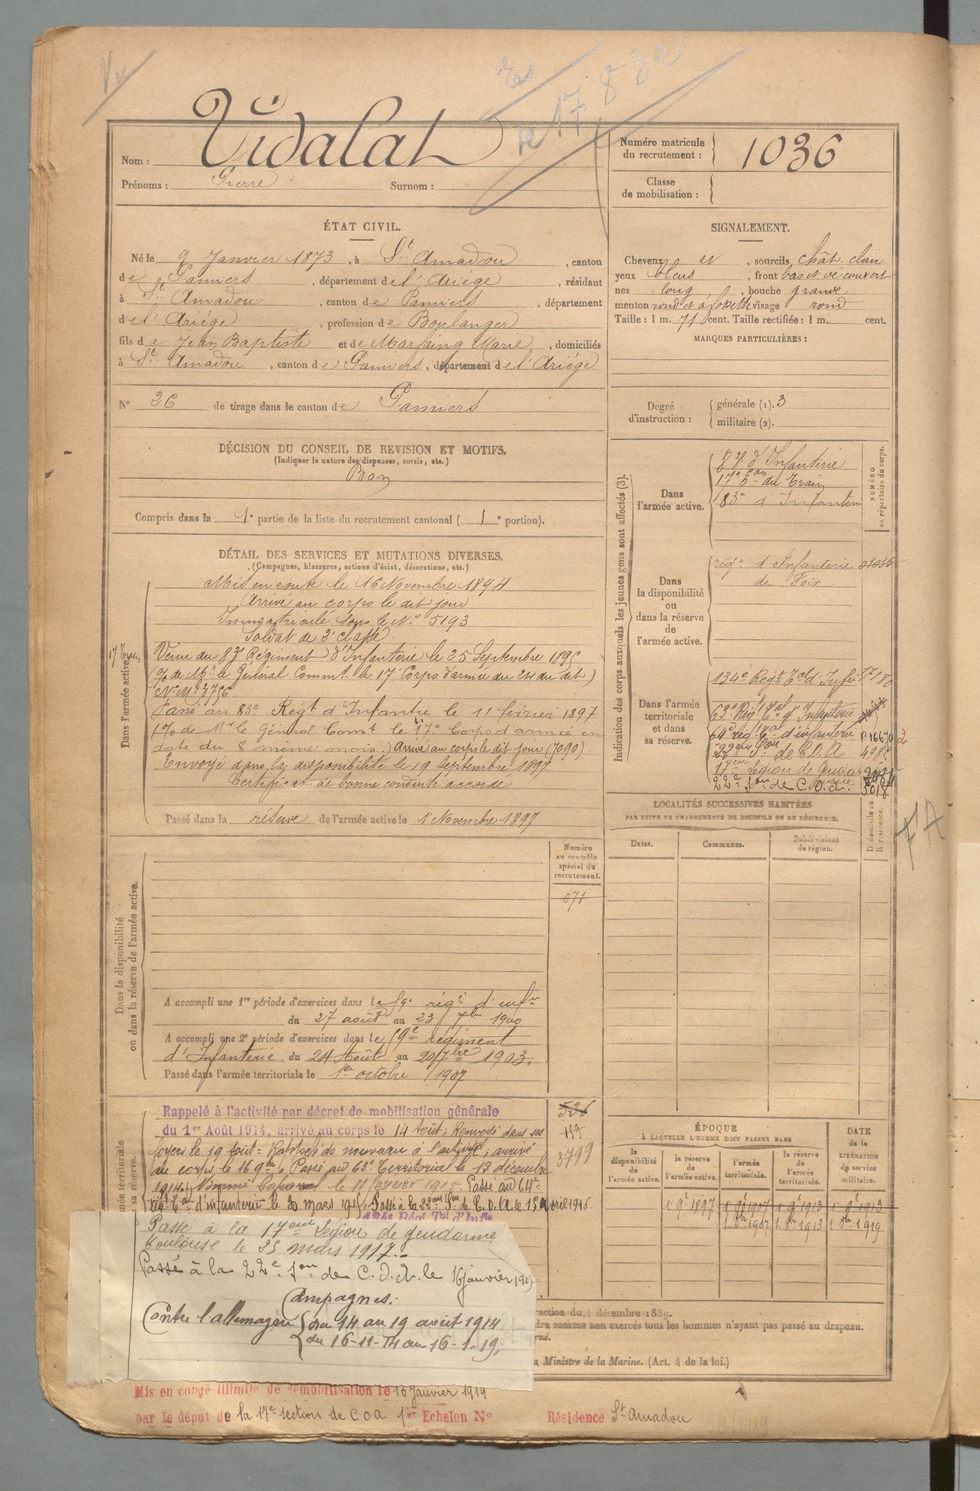 Vu
Nom : Vidalat
Prénoms : Pierre Surnom :
Numéro matricule
du recrutement : 1036
Classe
de mobilisation :
ÉTAT CIVIL.
Né le 9 Janvier 1873, à St Amadou, canton
de Pamiers, département de l'Ariége, résidant
à St Amadou, canton de Pamiers, département
de l'Ariége, profession de Boulanger
fils de Jean Baptiste et de Marfaing Marie, domiciliés
à St Amadou, canton de Pamiers, département de l'Ariége
N° 26 de tirage dans le canton de Pamiers
SIGNALEMENT.
Cheveux et, sourcils chât. clair
yeux bleus, front bas et découvert
nez long, bouche grande
menton rond et à fossette visage rond
Taille : 1 m. 71 cent. Taille rectifiée : 1 m. cent.
MARQUES PARTICULIÈRES :
Degré
d'instruction :
générale (1). 3
militaire (2).
DÉCISION DU CONSEIL DE REVISION ET MOTIFS.
(Indiquer la nature des dispenses, sursis, etc.)
Bon
Compris dans la 1e partie de la liste du recrutement cantonal (1e portion).
DÉTAIL DES SERVICES ET MUTATIONS DIVERSES.
(Campagnes, blessures, actions d'éclat, décorations, etc.)
Dans l'armée active.
Mis en route le 16 Novembre 1894
Arrivé au corps le dit jour
Immatriculé sous le N° 5193
Soldat de 2e classe.
Venu du 87 Régiment d'Infanterie le 25 Septembre 1895
17 Train
(% de Mr. le Général Commt. le 17 Corps d'armée du 24 du dit)
N. Mle 3756
Passé au 83e Regt d'Infantrie le 11 février 1897
(% de Mr le Général Comt. le 17e Corps d'armée en
date du 8 même mois.) Arrivé au corps le dit jour (7090).
Envoyé dans la disponibilité le 19 Septembre 1897
Certificat de bonne conduite accordé
Passé dans la réserve de l'armée active le 1 Novembre 1897
Indication des corps auxquels les jeunes gens sont affectés (3).
NUMÉRO
au répertoire du corps.
Dans
l'armée active.
87 d'Infanterie
17e Eon du Train
83e d'Infanterie
Dans
la disponibilité
ou
dans la réserve
de
l'armée active.
régt d'Infanterie
de Foix
Dans l'armée
territoriale
et dans
sa réserve.
134e Régt Tal d'Infie
63e Rég Tal d'Infanterie
64e rég Tal d'infanterie
22e Son de C.O.A
17eme légion de Gendar
22e Son de C.O.A. 5018
LOCALITÉS SUCCESSIVES HABITÉES
PAR SUITE DE CHANGEMENTS DE DOMICILE OU DE RÉSIDENCE.
Dates. Communes. Subdivisions
de région.
D. domicile ou
R. résidence.
Numéro
au contrôle
spécial du
recrutement.
571
Dans la disponibilité
ou dans la réserve de l'armée active.
A accompli une 1re période d'exercices dans le 59e régt d'infie
du 27 août au 23 7bre 1900
A accompli une 2e période d'exercices dans le 59e Régiment
d'Infanterie du 24 Août au 20 7bre 1903.
Passé dans l'armée territoriale le 1er octobre 1907
Rappelé à l'activité par décret de mobilisation générale
du 1er Août 1914, arrivé au corps le 14 Août. Renvoyé dans ses
foyers le 19 Août. Rappelé de nouveau à l'activité, arrivé
au corps le 16 9bre. Passé au 63e Territorial le 12 décembre
1914. Nommé Caporal le 11 février 1915. Passé au 64e
régt Tal d'infanterie le 20 mars 1915. Passé à la 22eme Son de C.O.A. le 15 avril 1916
134e Régt Tal d'Infie
526
119
3799
ÉPOQUE
À LAQUELLE L'HOMME DOIT PASSER DANS
la
disponibilité
de
l'armée active.
la réserve
de
l'armée active.
l'armée
territoriale.
la réserve
de
l'armée
territoriale.
DATE
de la
LIBÉRATION
du service
militaire.
1 9e 1897 1 9e 1907 1 9e 1913 1 9e 1913
Passé à la 17eme légion de gendarmie
Toulouse le 25 mars 1917.
Passé à la 22e Son de C.O.A. le 16 janvier 19
Campagnes :
Contre l'allemagne du 14 au 19 août 1914
du 16-11-14 au 16-1-19.
ruction du 4 décembre 1889.
dra comme non exercés tous les hommes n'ayant pas passé au drapeau.
Ministre de la Marine. (Art. 4 de la loi.)
Mis en congé illimité de démobilisation le 16 Janvier 1919
par le dépôt de la 17e section de COA 1er Echelon N° Résidence St Amadou